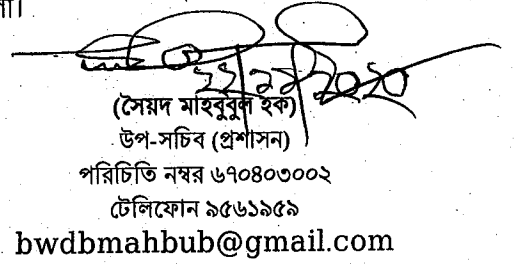 ২২/১১/২০২০
(সৈয়দ মাহবুবুল হক)
উপ-সচিব (প্রশাসন)
পরিচিতি নম্বর ৬৭০৪০৩০০২
টেলিফোন ৯৫৬১৯৫৯
bwdbmahbub@gmail.com